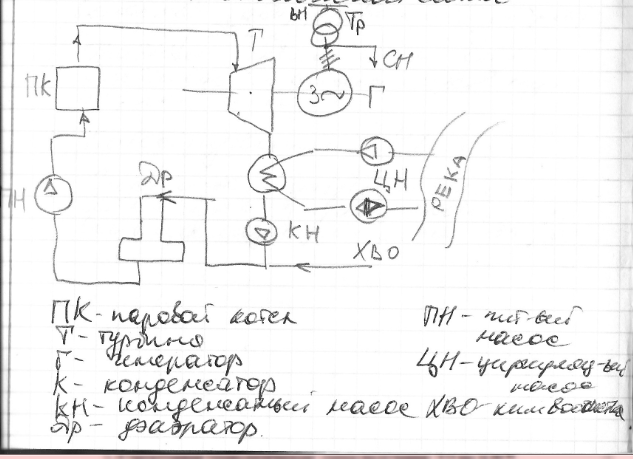 ВН Тр
Т
СН
ПК
3~ Г
Др
ЦН
РЕКА
ПН
КН
ХВО
ПК - паровой котел
Т - турбина
Г - генератор
К - конденсатор
КН - конденсатный насос
Др - деаэратор.
ПН - пит-ый
насос
ЦН - циркуляц-ый
насос
ХВО - химводоочистка